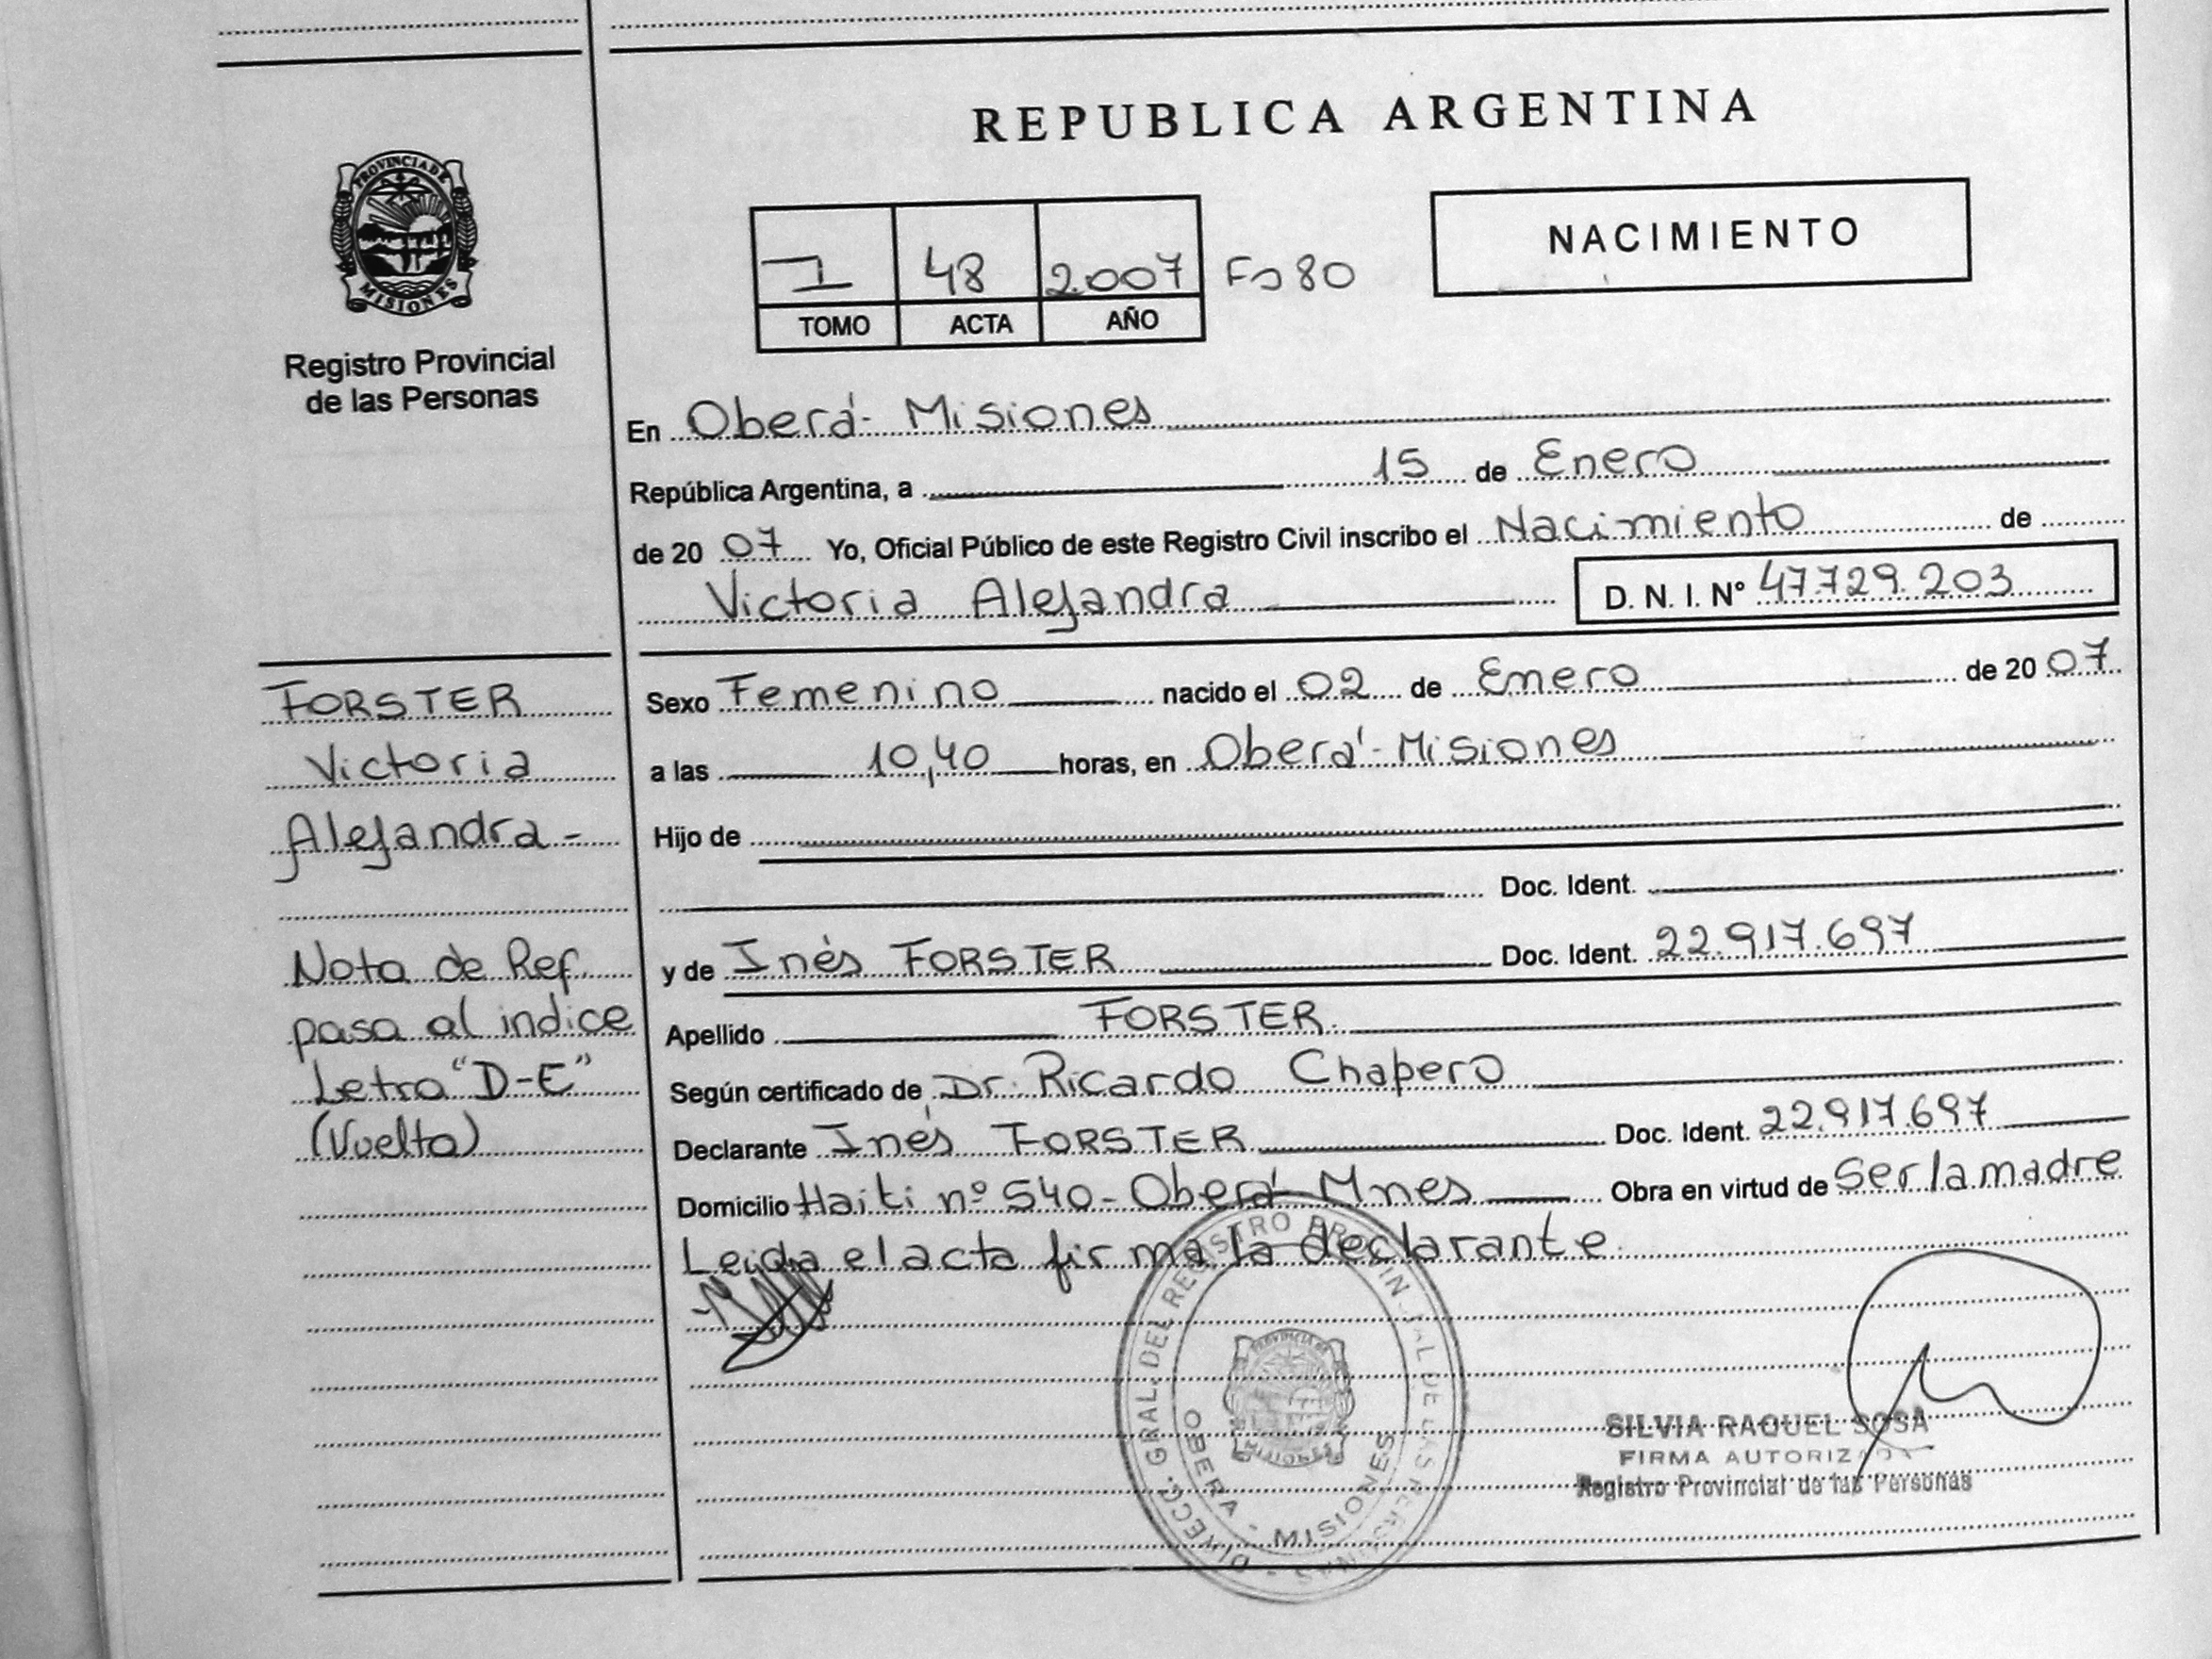 REPUBLICA ARGENTINA
PROVINCIA DE
MISIONES
Registro Provincial
de las Personas
I 48 2.007 Fo 80
TOMO ACTA AÑO
NACIMIENTO
En Oberá - Misiones
República Argentina, a 15 de Enero
de 20 07 Yo, Oficial Público de este Registro Civil inscribo el Nacimiento de
Victoria Alejandra D. N. I. Nº 47.729.203
FORSTER
Victoria
Alejandra -
Nota de Ref.
pasa al indice
Letra "D-E"
(Vuelta)
Sexo Femenino nacido el 02 de Enero de 20 07
a las 10,40 horas, en Oberá - Misiones
Hijo de
Doc. Ident.
y de Inés FORSTER Doc. Ident. 22.917.697
Apellido FORSTER
Según certificado de Dr. Ricardo Chapero
Declarante Inés FORSTER Doc. Ident. 22.917.697
Domicilio Haiti nº 540 - Oberá - Mnes Obra en virtud de Ser la madre
Leida el acta firma la declarante
DIRECC. GRAL. DEL REGISTRO PROVINCIAL DE LAS PERSONAS
OBERA - MISIONES
SILVIA RAQUEL SOSA
FIRMA AUTORIZADA
Registro Provincial de las Personas